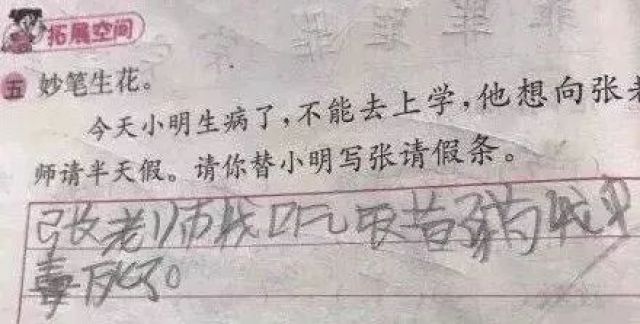 拓展空间
五 妙笔生花。
今天小明生病了,不能去上学,他想向张老
师请半天假。请你替小明写张请假条。
张老师我吃错药我中
毒死了。